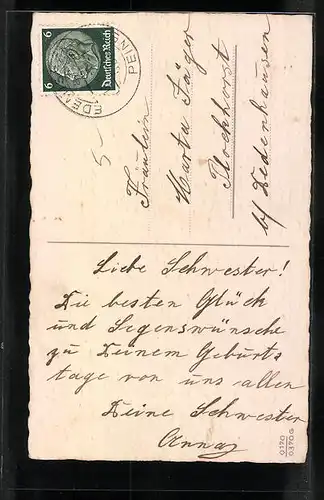 6 Deutsches Reich 6
PEINE
EDEM
5
Fräulein
Marta Jäger
Plockhorst
b/ Dedenhausen
Liebe Schwester!
Die besten Glück
und Segenswünsche
zu Deinem Geburts
tage von uns allen
Deine Schwester
Anna
0170
0370 G